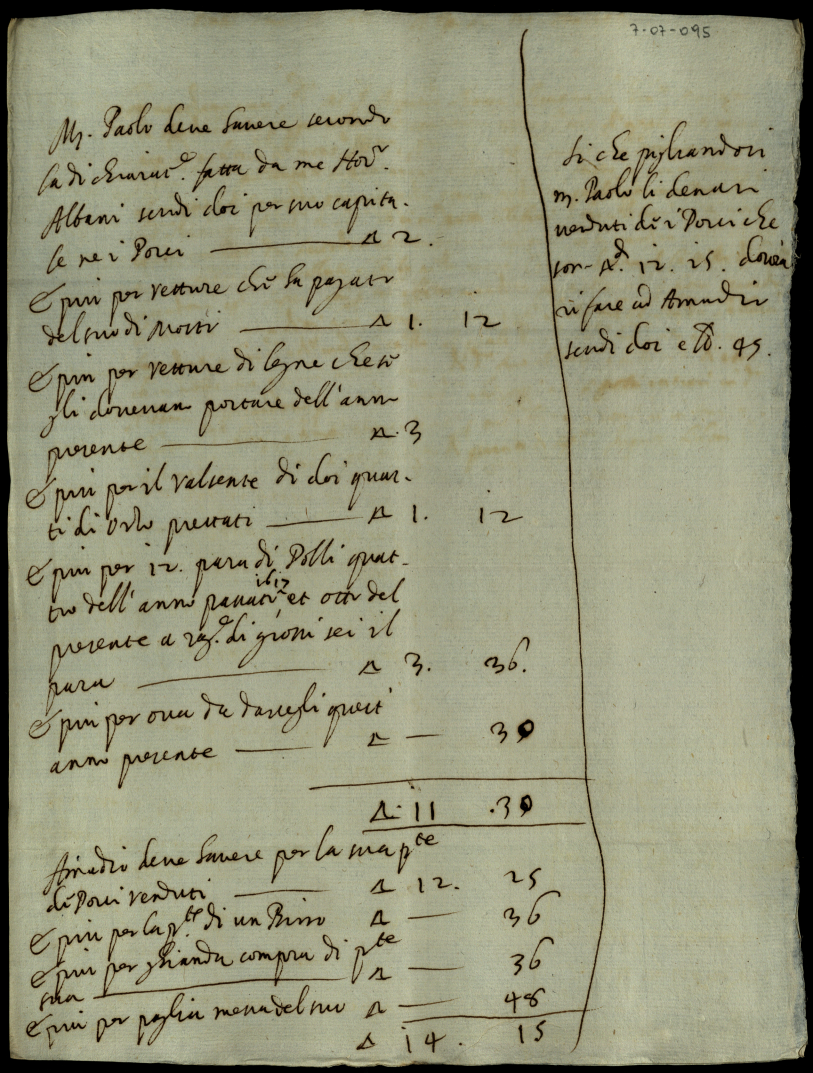 7-07-095
Mr. Paolo deve havere secondo
la dichiarat.e fatta da me Hor.
Albani scudi doi per suo capita-
le ne i Porci ——— Δ 2.
E più per vetture che ha pagati
del suo di Mosti ——— Δ 1. 12
E più per vetture di legne che se
gli dovevano portare dell'anno
presente ——— Δ. 3
E più per il valsente di doi quar-
ti di Orzo prestati ——— Δ 1. 12
E più per 12. para di Polli quat-
tro dell'anno passato 1617 et otto del
presente a rag.e di grossi sei il
para ——— Δ 3. 36.
E più per ova da darsegli quest'
anno presente ——— Δ — 30
Δ. 11 .30
Amadio deve havere per la sua p.te
de Porci venduti ——— Δ 12. 25
E più per la p.te di un Birro Δ — 36
E più per ghianda compra di p.te
sua ——— Δ — 36
E più per paglia messa del suo Δ — 48
Δ 14. 15
Si che pigliandosi
m. Paolo li denari
venduti de i Porci che
son Δ.di 12. 25. doverà
rifare ad Amadio
scudi doi e b. 45.